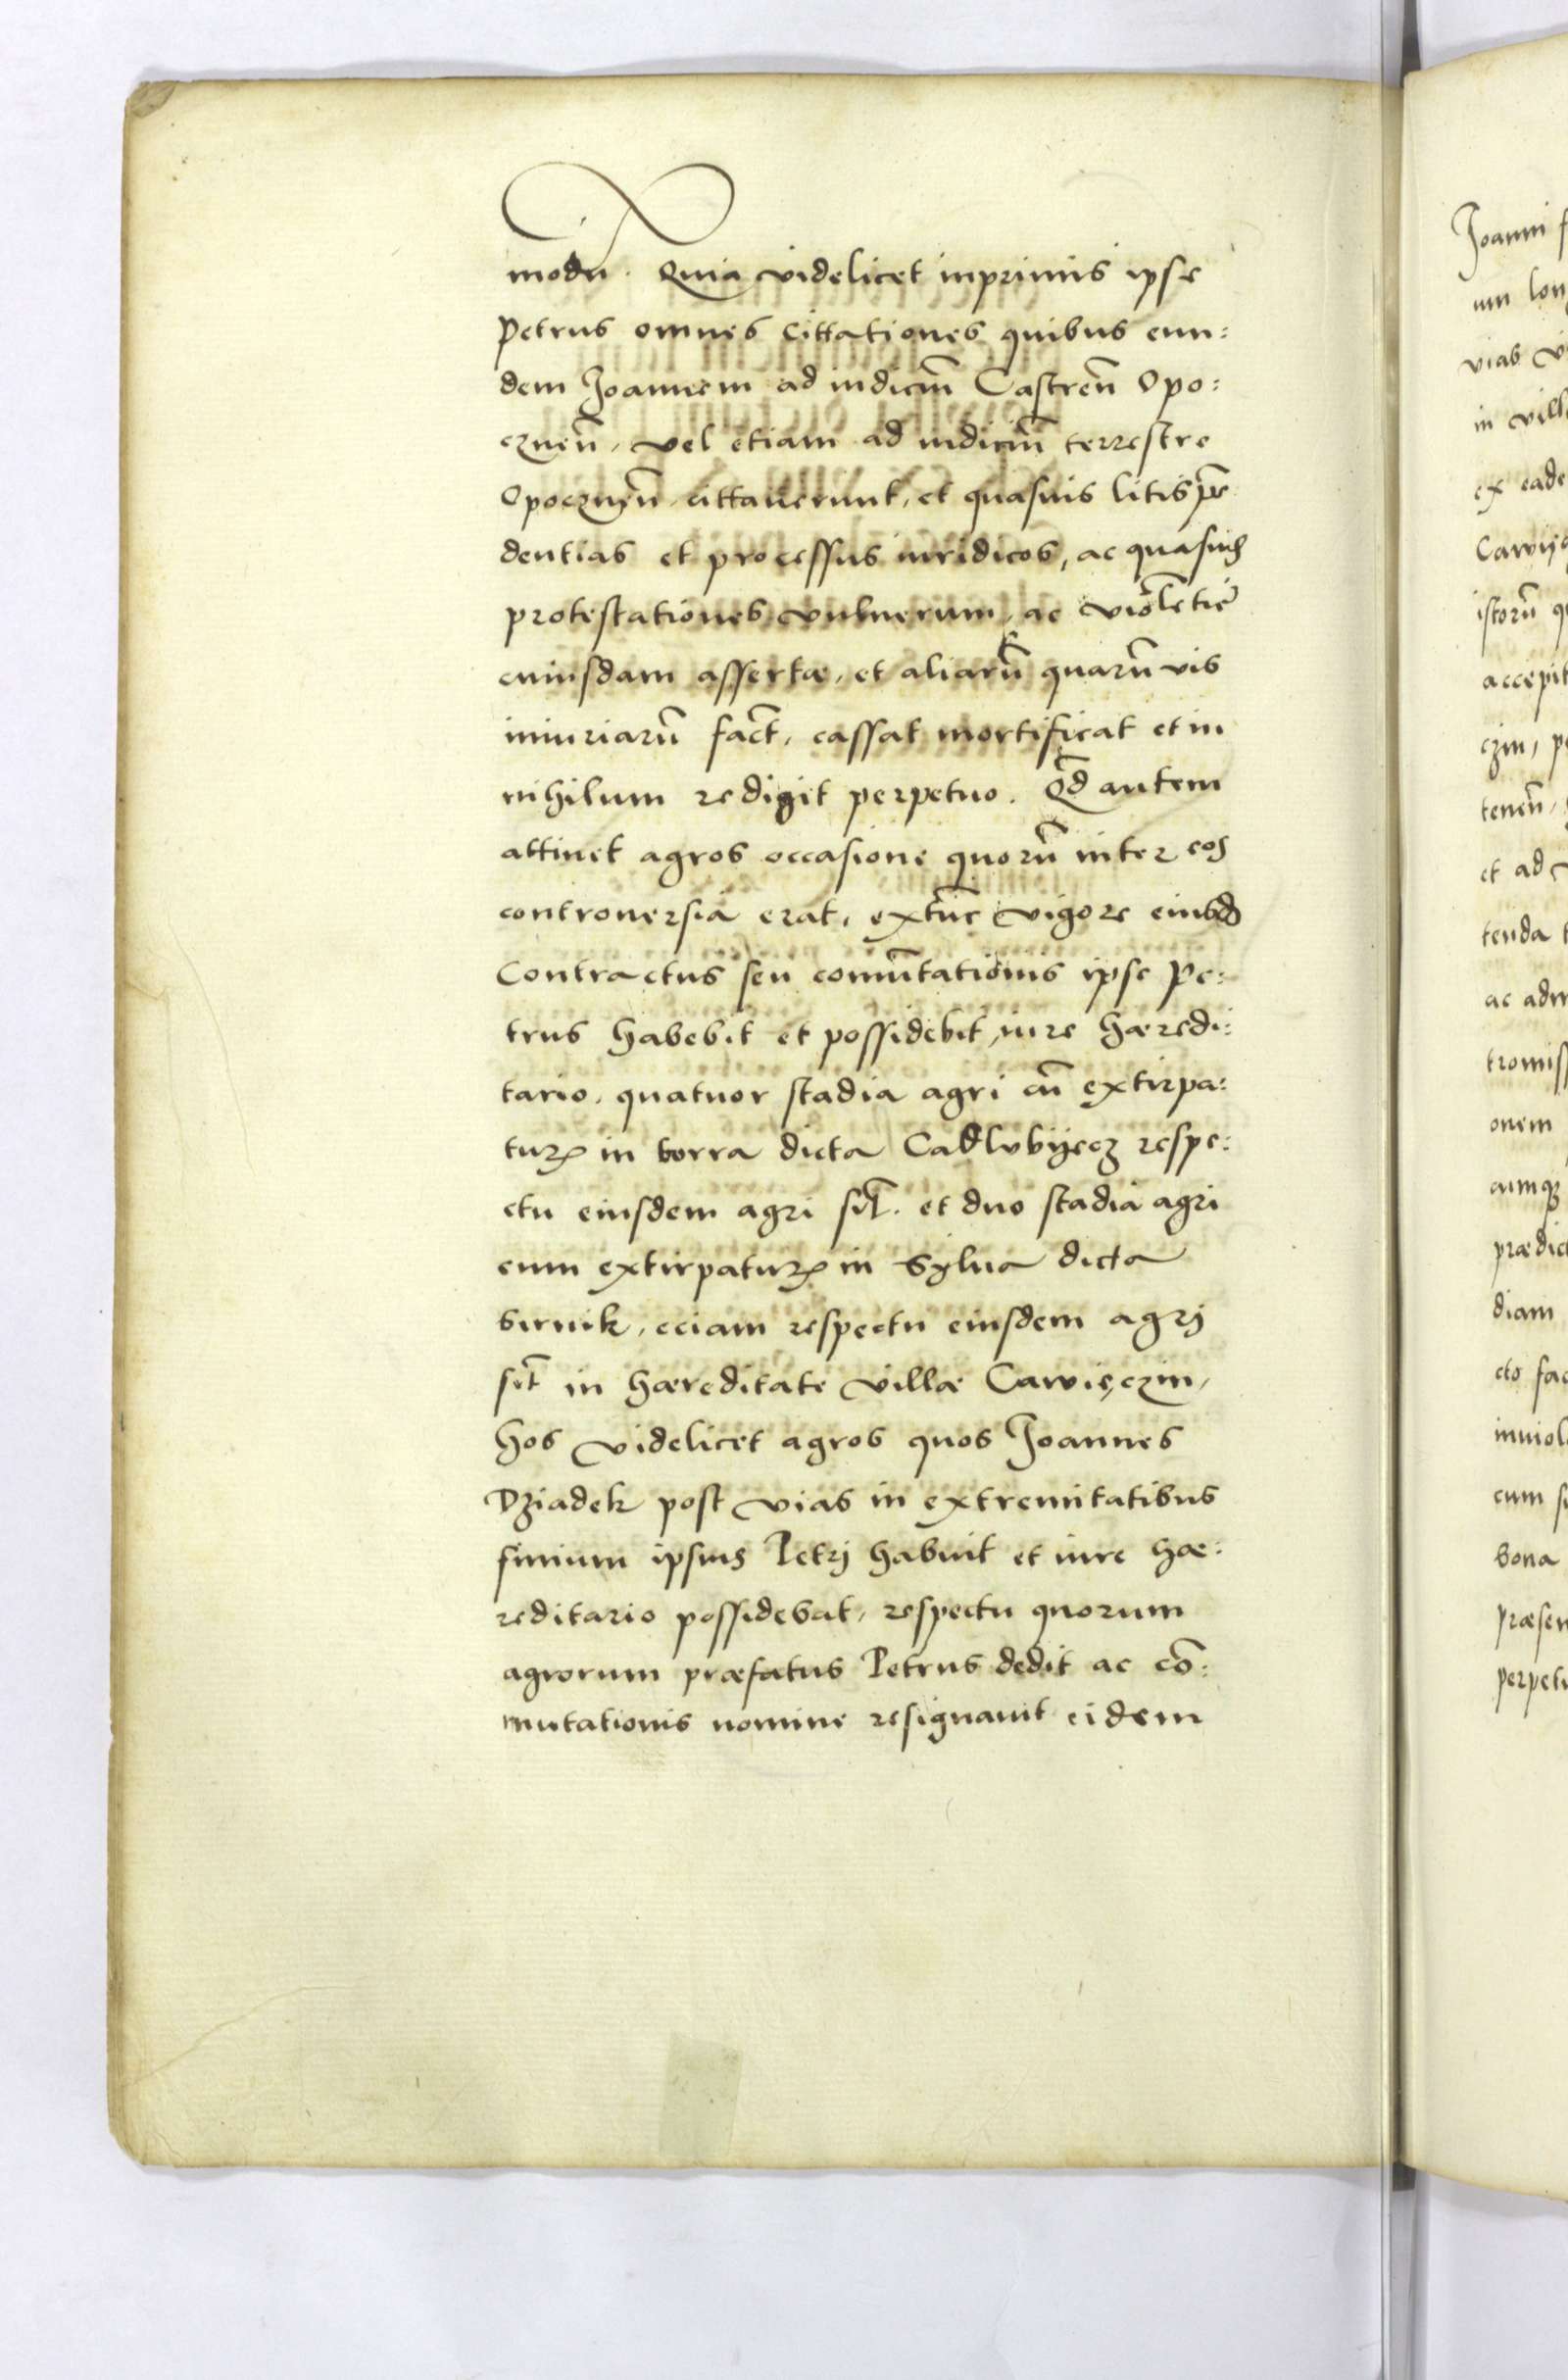 modū. Quia videlicet inprimis ipse
Petrus omnes cittationes quibus eun:
dem Joannem ad iudiciū Castreñ Opo:
cznen̄, vel etiam ad iudiciū terrestre
Opocznen̄ cittauerunt, et quasuis litis pē
dentias et processus iuridicos, ac quasuis
protestationes vulnerum, ac violētiē
cuiusdam assertæ, et aliarū quarūvis
iniuriarū fact, cassat mortificat et in
nihilum redigit perpetuo. Qd autem
attinet agros occasione quorū inter eos
controuersia erat, extūc vigore eiusd
Contractus seu comūtationis ipse Pe:
trus habebit et possidebit, iure hæredi:
tario, quatuor stadia agri cū extirpa:
tur in borra dicta Cadlvbijecz respe:
ctu eiusdem agri sit. et duo stadia agri
cum extirpatur in Sylua dicta
Sirnik, eciam respectu eiusdem agrj
sit in hæreditate villæ Cawięczin,
hos videlicet agros quos Joannes
Dziadek post vias in extremitatibus
finium ipsius Petrj habuit et iure hæ:
reditario possidebat, respectu quorum
agrorum præfatus Petrus dedit ac cō:
mutationis nomine resignauit eidem
Joanni
um lon
viab
in vill
ex eade
Cawij
istorū
accepit
czin,
tenen̄,
et ad
tenda
ac adm
tromiss
onem
cumq
prædict
diam
cto fac
inuiol
cum
bona
præsen
perpetu